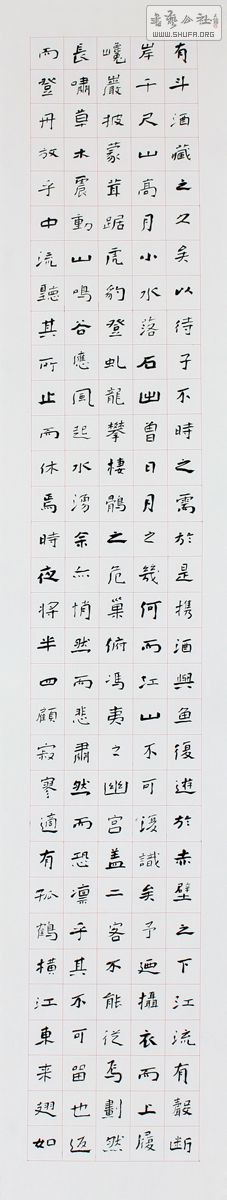 书艺公社
WWW.SHUFA.ORG
有斗酒藏之久矣以待子不時之需於是携酒與鱼復遊於赤壁之下江流有聲断
岸千尺山高月小水落石出曽日月之幾何而江山不可復識矣予迺攝衣而上履
巉巖披蒙茸踞虎豹登虬龍攀棲鶻之危巢俯馮夷之幽宮盖二客不能從焉劃然
長嘯草木震動山鳴谷應風起水涌余亦悄然而悲肅然而恐凛乎其不可留也返
而登舟放乎中流聽其所止而休焉時夜将半四顧寂寥適有孤鶴橫江東来翅如